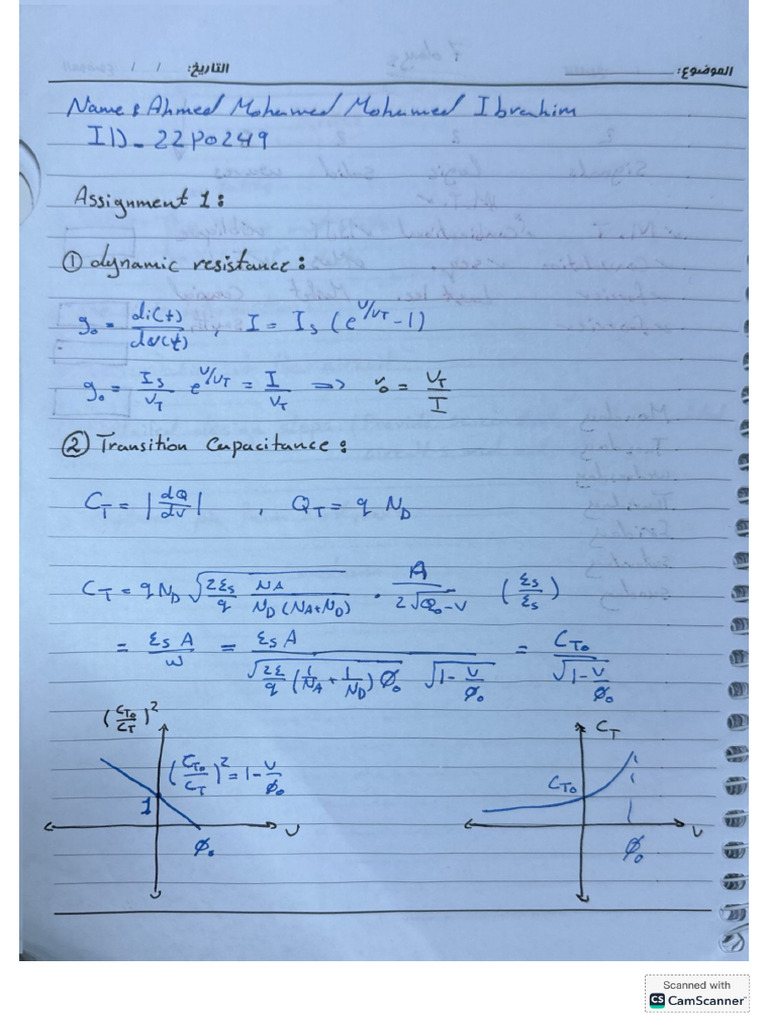 الموضوع: التاريخ: / /
Name: Ahmed Mohamed Mohamed Ibrahim
ID- 22P0249
Assignment 1:
① dynamic resistance:
g₀ = di(t)/dv(t) , I = Iₛ (e^(V/VT) - 1)
g₀ = Iₛ/VT e^(V/VT) = I/VT => r₀ = VT/I
② Transition Capacitance:
C_T = |dQ/dv| , Q_T = q N_D
C_T = q N_D √(2Ɛs/q N_A/(N_D (N_A+N_D))) . A/(2√(Ø₀-V)) (Ɛs/Ɛs)
= Ɛs A/w = Ɛs A/(√(2Ɛ/q (1/N_A + 1/N_D) Ø₀) √(1 - V/Ø₀)) = C_T₀/√(1 - V/Ø₀)
(C_T₀/C_T)²
(C_T₀/C_T)² = 1 - V/Ø₀
1
V
Ø₀
C_T
C_T₀
V
Ø₀
Scanned with
CS CamScanner